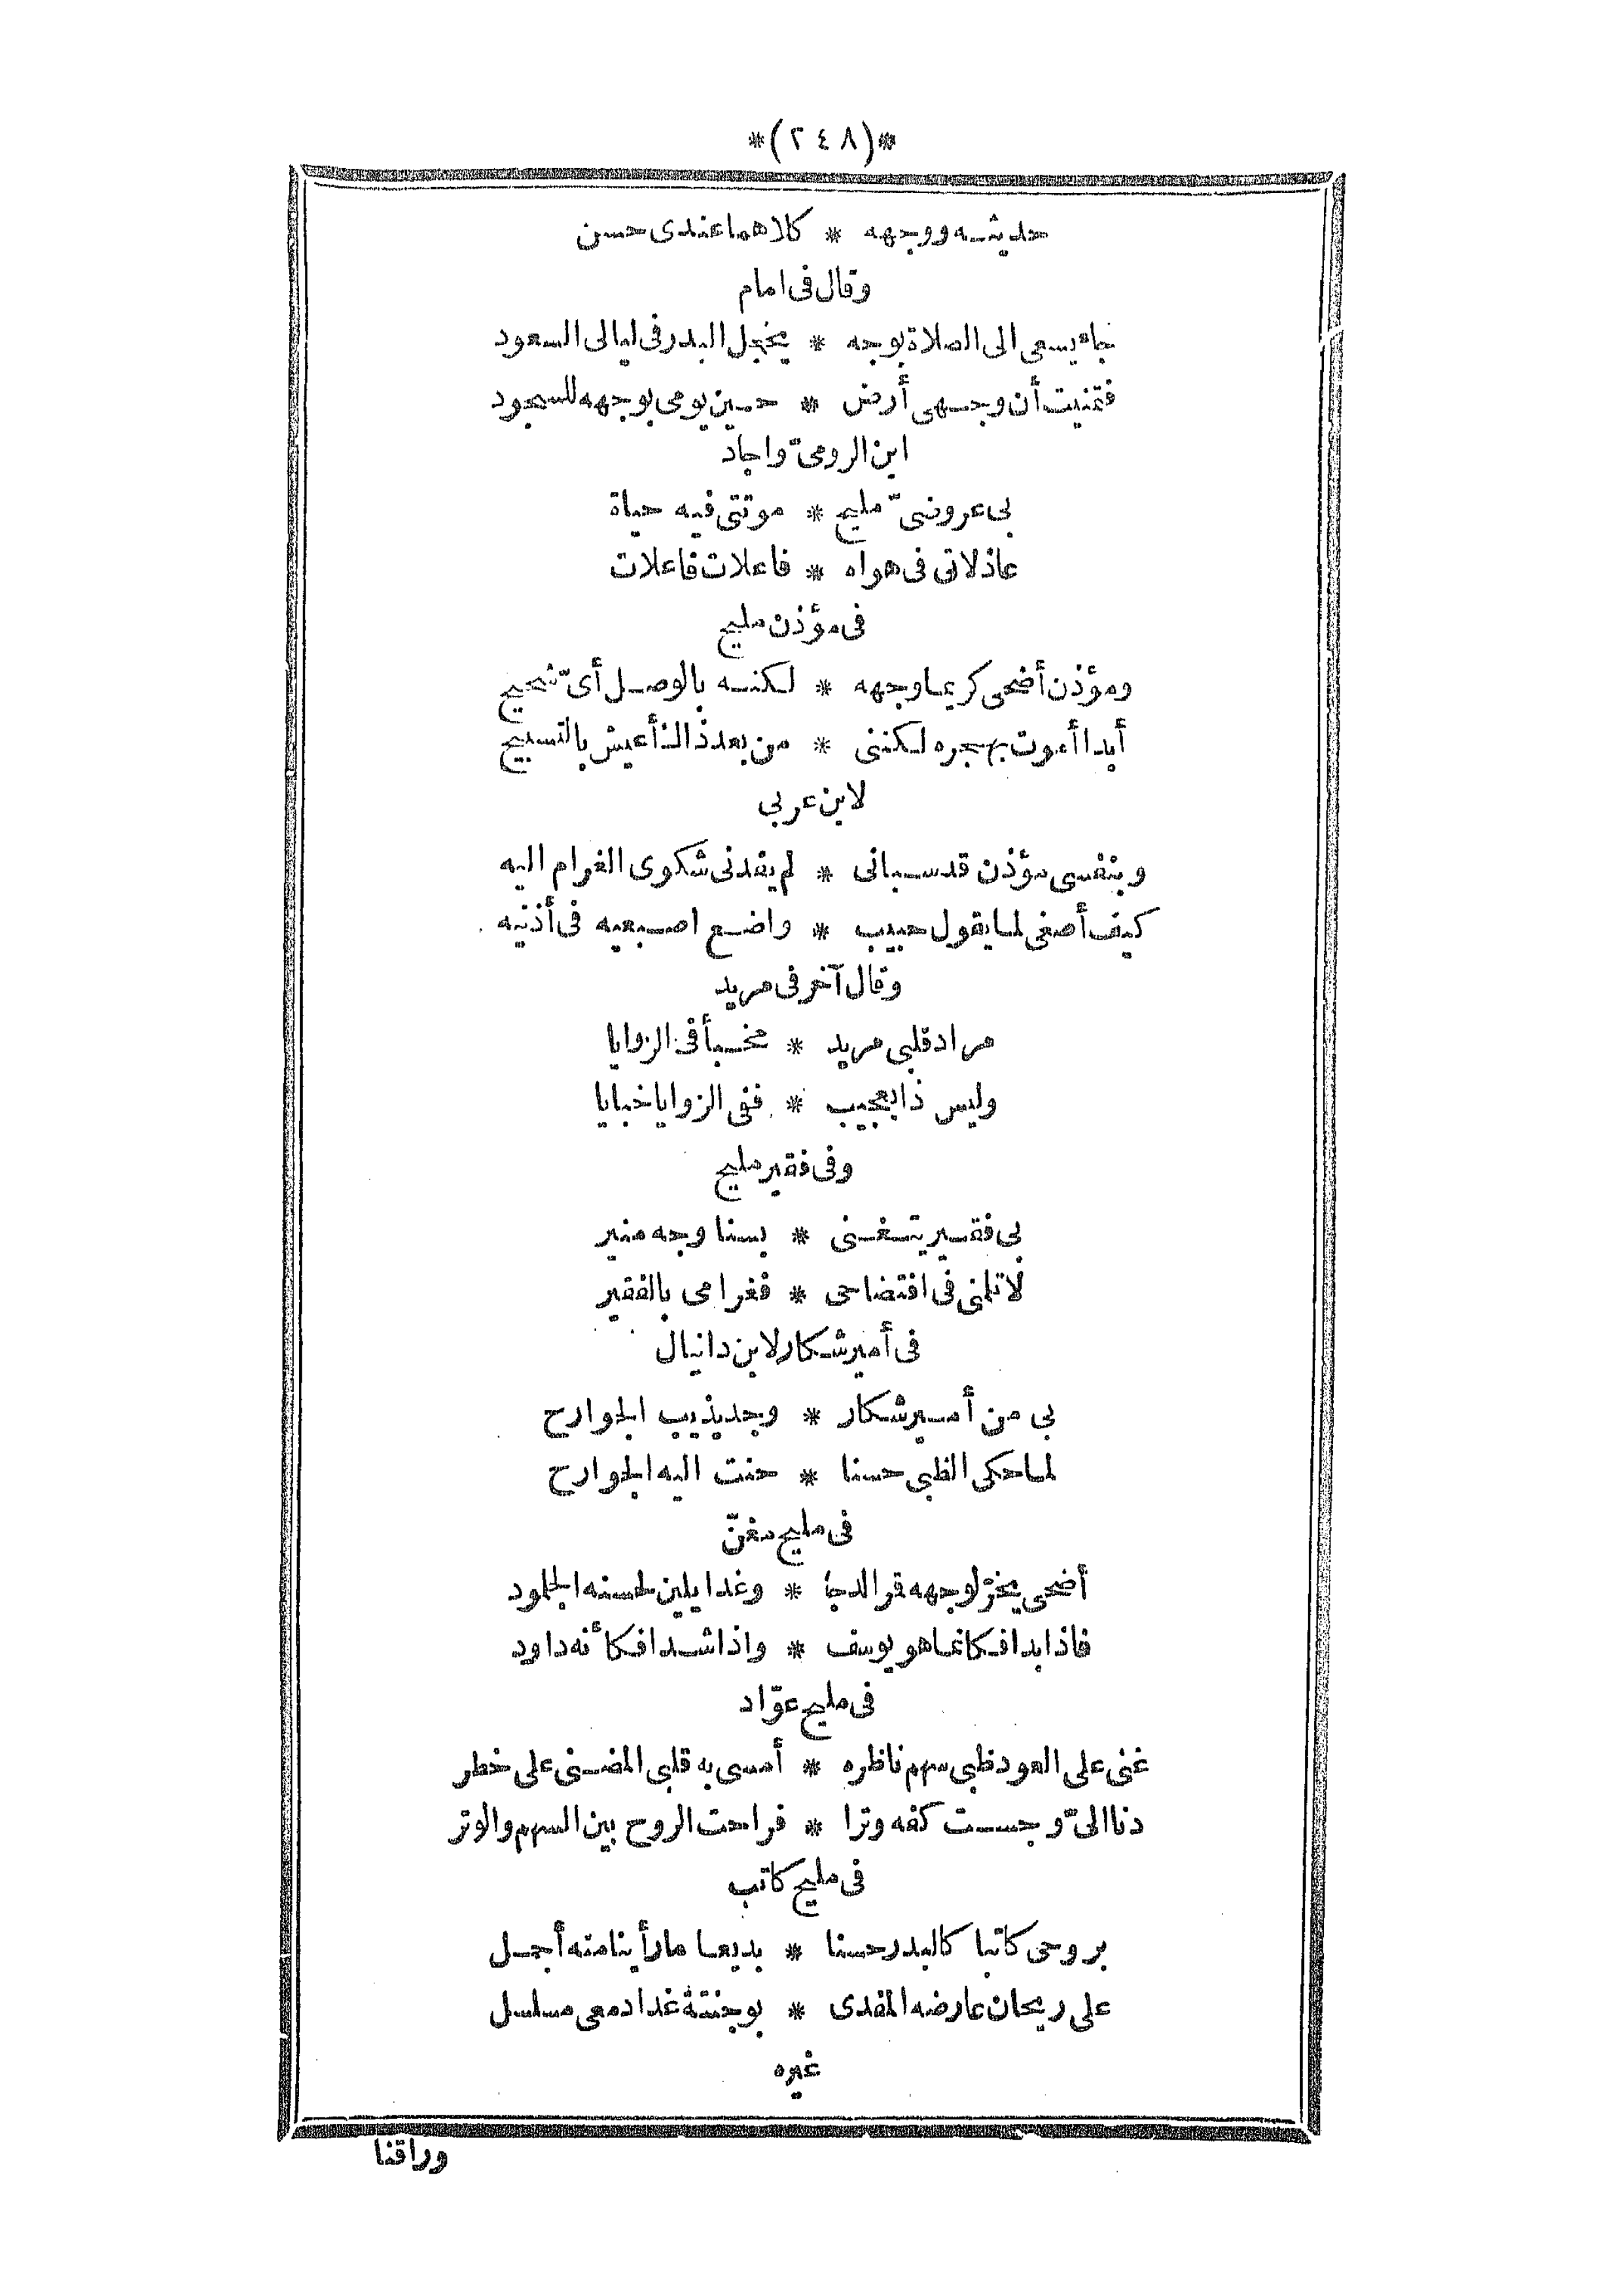 *(٢٤٨)*
حديثه ووجهه * كلاهما عندى حسن
وقال فى امام
جاء يسعى الى الصلاة بوجه * يخجل البدر فى ليالى السعود
فتمنيت أن وجهى أرض * حين يومى بوجهه للسجود
ابن الرومىّ واجاد
بى عروضىّ مليح * موتتى فيه حياة
عاذلاتى فى هواه * فاعلات فاعلات
فى مؤذن مليح
ومؤذن أضحى كريما وجهه * لكنه بالوصل أىّ شحيح
أبدا أموت بهجره لكننى * من بعد ذاك أعيش بالتسبيح
لابن عربى
وبنفسى مؤذن قد سبانى * لم يفدنى شكوى الغرام اليه
كيف أصغى لما يقول حبيب * واضع اصبعيه فى أذنيه
وقال آخر فى مريد
مراد قلبى مريد * مخبأ فى الزوايا
وليس ذا بعجيب * ففى الزوايا خبايا
وفى فقير مليح
بى فقير يتغنى * بسنا وجه منير
لا تلمنى فى افتضاحى * فغرامى بالفقير
فى أمير شكار لابن دانيال
بى من أمير شكار * وجد يذيب الجوارح
لما حكى الظبى حسنا * حنت اليه الجوارح
فى مليح مغنّ
أضحى يخرّ لوجهه قمر الدجا * وغدا يلين لحسنه الجلمود
فاذا بدا فكانما هو يوسف * واذا شدا فكأنه داود
فى مليح عوّاد
غنى على العود ظبى سهم ناظره * أمسى به قلبى المضنى على خطر
دنا الىّ وجست كفه وترا * فراحت الروح بين السهم والوتر
فى مليح كاتب
بروحى كاتبا كالبدر حسنا * بديعا ما رأينا منه أجمل
على ريحان عارضه المفدى * بوجنته غدا دمعى مسلسل
غيره
وراقنا